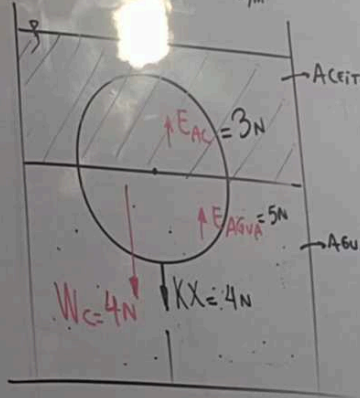 ACEIT
E_AC = 3N
E_AGUA = 5N
AGU
W_C = 4N
KX = 4N